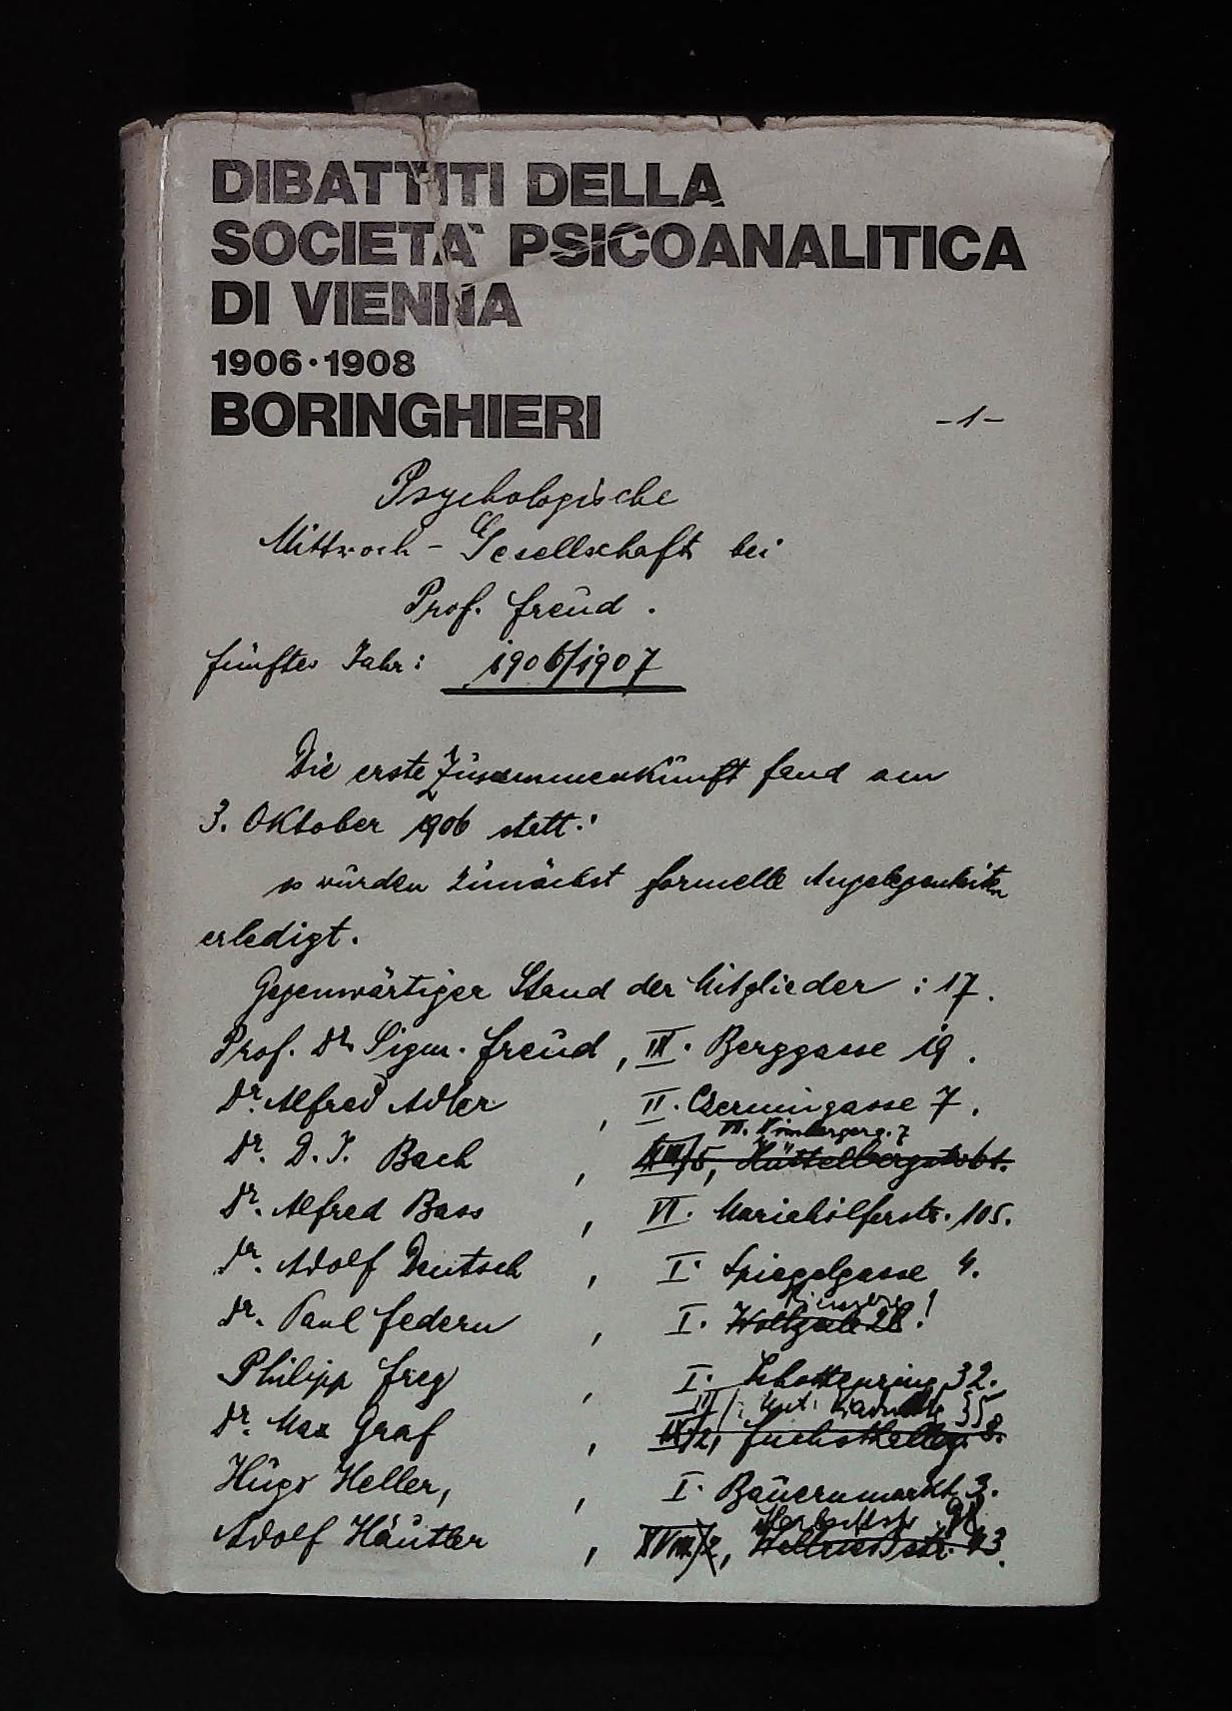 DIBATTITI DELLA
SOCIETA` PSICOANALITICA
DI VIENNA
1906·1908
BORINGHIERI
-1-
Psychologische
Mittwoch-Gesellschaft bei
Prof. Freud.
Fünftes Jahr: 1906/1907
Die erste Zusammenkunft fand am
3. Oktober 1906 statt:
es wurden zunächst formelle Angelegenheiten
erledigt.
Gegenwärtiger Stand der Mitglieder: 17.
Prof. Dr. Sigm. Freud, IX. Berggasse 19.
Dr. Alfred Adler, II. Czerningasse 7.
Dr. D. J. Bach,
Dr. Alfred Bass, VI. Mariahilferstr. 105.
Dr. Adolf Deutsch, I. Spiegelgasse 4.
Dr. Paul Federn, I. Wollzeile 28!
Philipp Frey, I. Schottenring 32.
Dr. Max Graf, Fuchsthallerg. 8.
Hugo Heller, , I. Bauernmarkt 3.
Adolf Häutler,